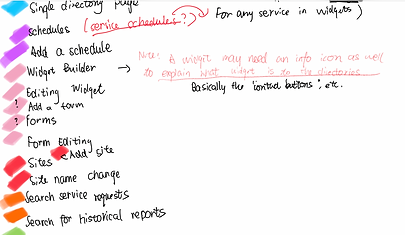 Single directory page
schedules (service schedules?) For any service in widgets)
Add a schedule
Widget Builder → Note: A widget may need an info icon as well
to explain what widget is to the directories
Editing Widget
Basically the control buttons, etc.
! Add a form
! forms
Form Editing
Sites < Add site
Site name change
Search service requests
Search for historical reports